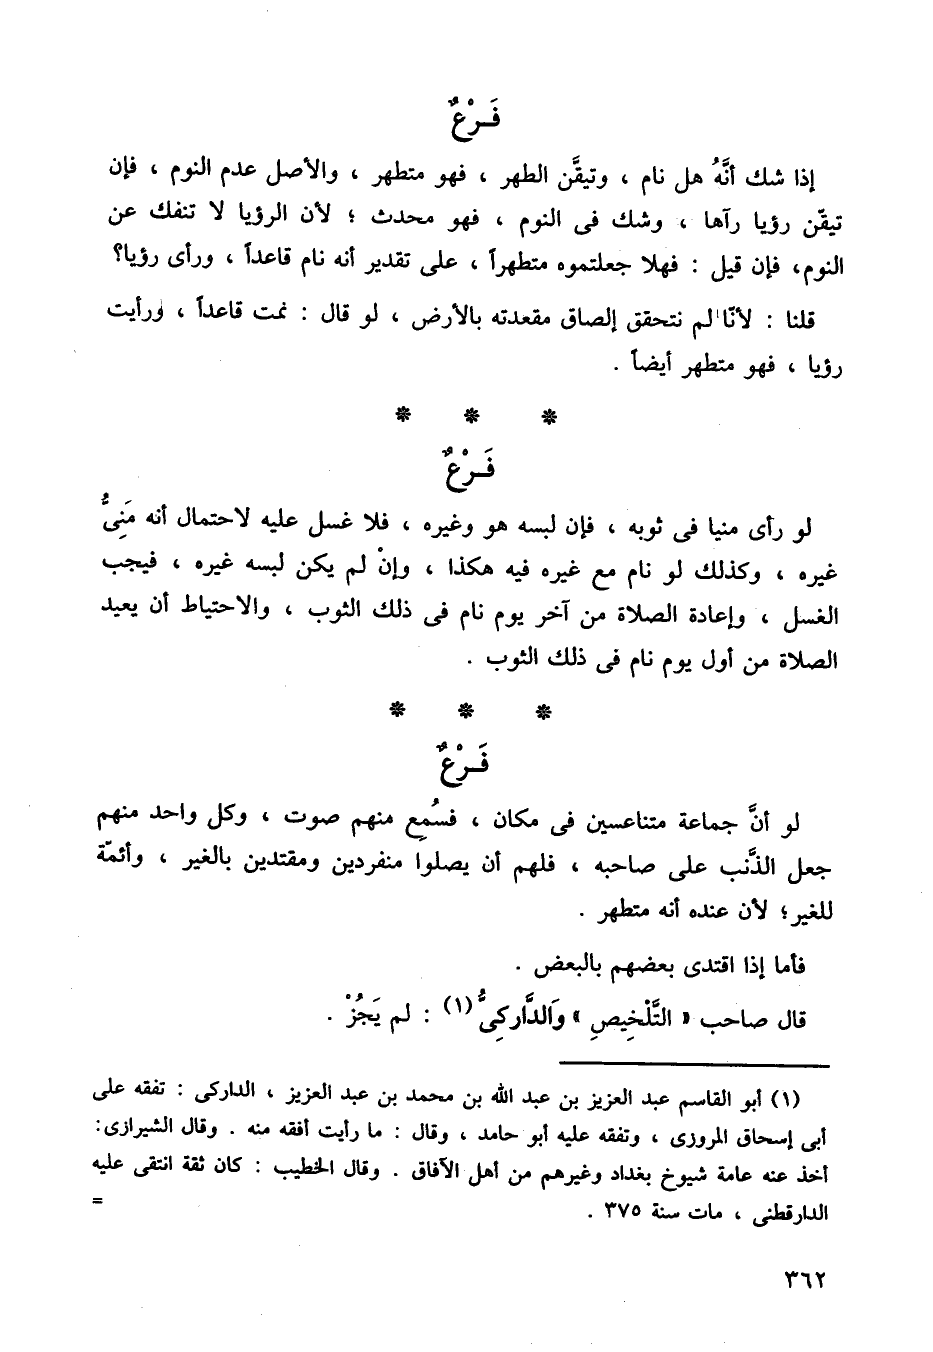 فَرْعٌ
إذا شك أنَّهُ هل نام ، وتيقَّن الطهر ، فهو متطهر ، والأصل عدم النوم ، فإن
تيقّن رؤيا رآها ، وشك فى النوم ، فهو محدث ؛ لأن الرؤيا لا تنفك عن
النوم، فإن قيل : فهلا جعلتموه متطهراً ، على تقدير أنه نام قاعداً ، ورأى رؤيا؟
قلنا : لأنّا لم نتحقق إلصاق مقعدته بالأرض ، لو قال : نمت قاعداً ، ورأيت
رؤيا ، فهو متطهر أيضاً .
* * *
فَرْعٌ
لو رأى منيا فى ثوبه ، فإن لبسه هو وغيره ، فلا غسل عليه لاحتمال أنه مَنِىُّ
غيره ، وكذلك لو نام مع غيره فيه هكذا ، وإنْ لم يكن لبسه غيره ، فيجب
الغسل ، وإعادة الصلاة من آخر يوم نام فى ذلك الثوب ، والاحتياط أن يعيد
الصلاة من أول يوم نام فى ذلك الثوب .
* * *
فَرْعٌ
لو أنَّ جماعة متناعسين فى مكان ، فسُمِع منهم صوت ، وكل واحد منهم
جعل الذَّنب على صاحبه ، فلهم أن يصلوا منفردين ومقتدين بالغير ، وأئمّة
للغير؛ لأن عنده أنه متطهر .
فأما إذا اقتدى بعضهم بالبعض .
قال صاحب « التَّلْخِيصِ » وَالدَّارِكِىُّ (١) : لم يَجُزْ .
(١) أبو القاسم عبد العزيز بن عبد الله بن محمد بن عبد العزيز ، الداركى : تفقه على
أبى إسحاق المروزى ، وتفقه عليه أبو حامد ، وقال : ما رأيت أفقه منه . وقال الشيرازى:
أخذ عنه عامة شيوخ بغداد وغيرهم من أهل الآفاق . وقال الخطيب : كان ثقة انتقى عليه
الدارقطنى ، مات سنة ٣٧٥ . =
٣٦٢